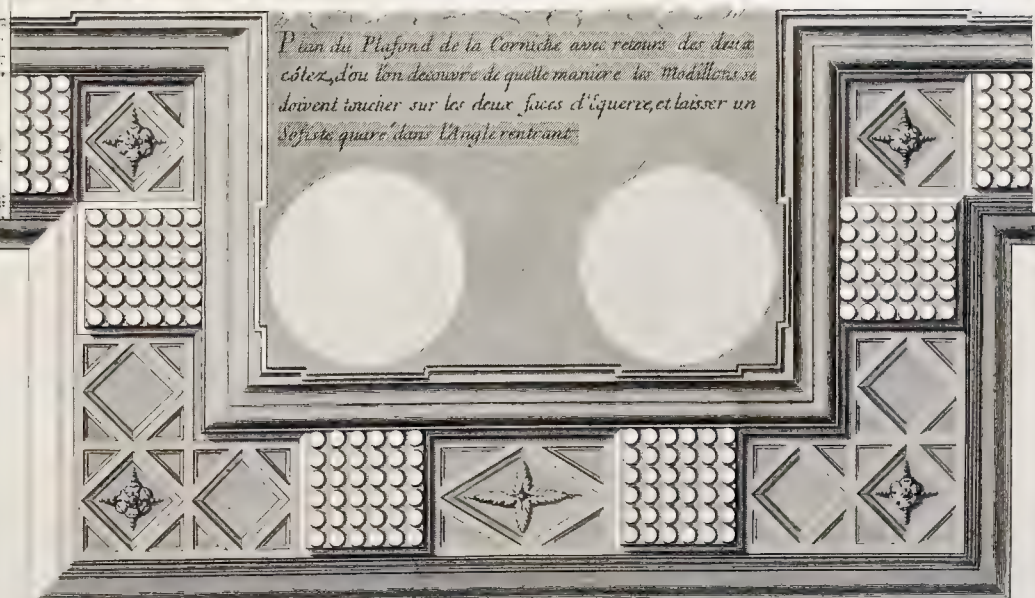 Plan du Plafond de la Corniche avec retours des deux
côtez, d'ou l'on decouvre de quelle maniere les Modillons se
doivent toucher sur les deux faces d'Equerre, et laisser un
Sofiste quaré dans l'Angle rentrant